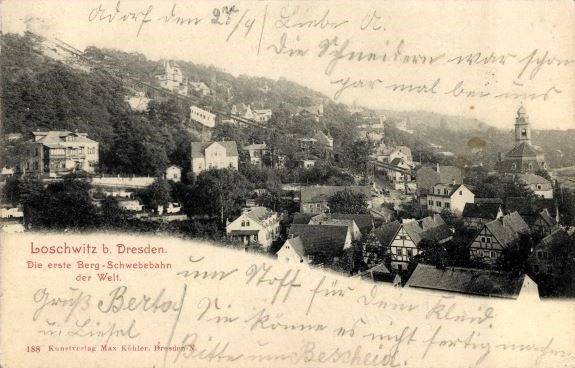 Adorf den 27/9
Liebe A.
Die Schneidern war schon
gar mal bei uns
Loschwitz b. Dresden.
Die erste Berg-Schwebebahn
der Welt.
um Stoff für Dem Kleid.
Gruß Berta
u Liesel
Sie könne es nicht fertig machen
Bitte um Bescheid.
188 Kunstverlag Max Köhler, Dresden-N.